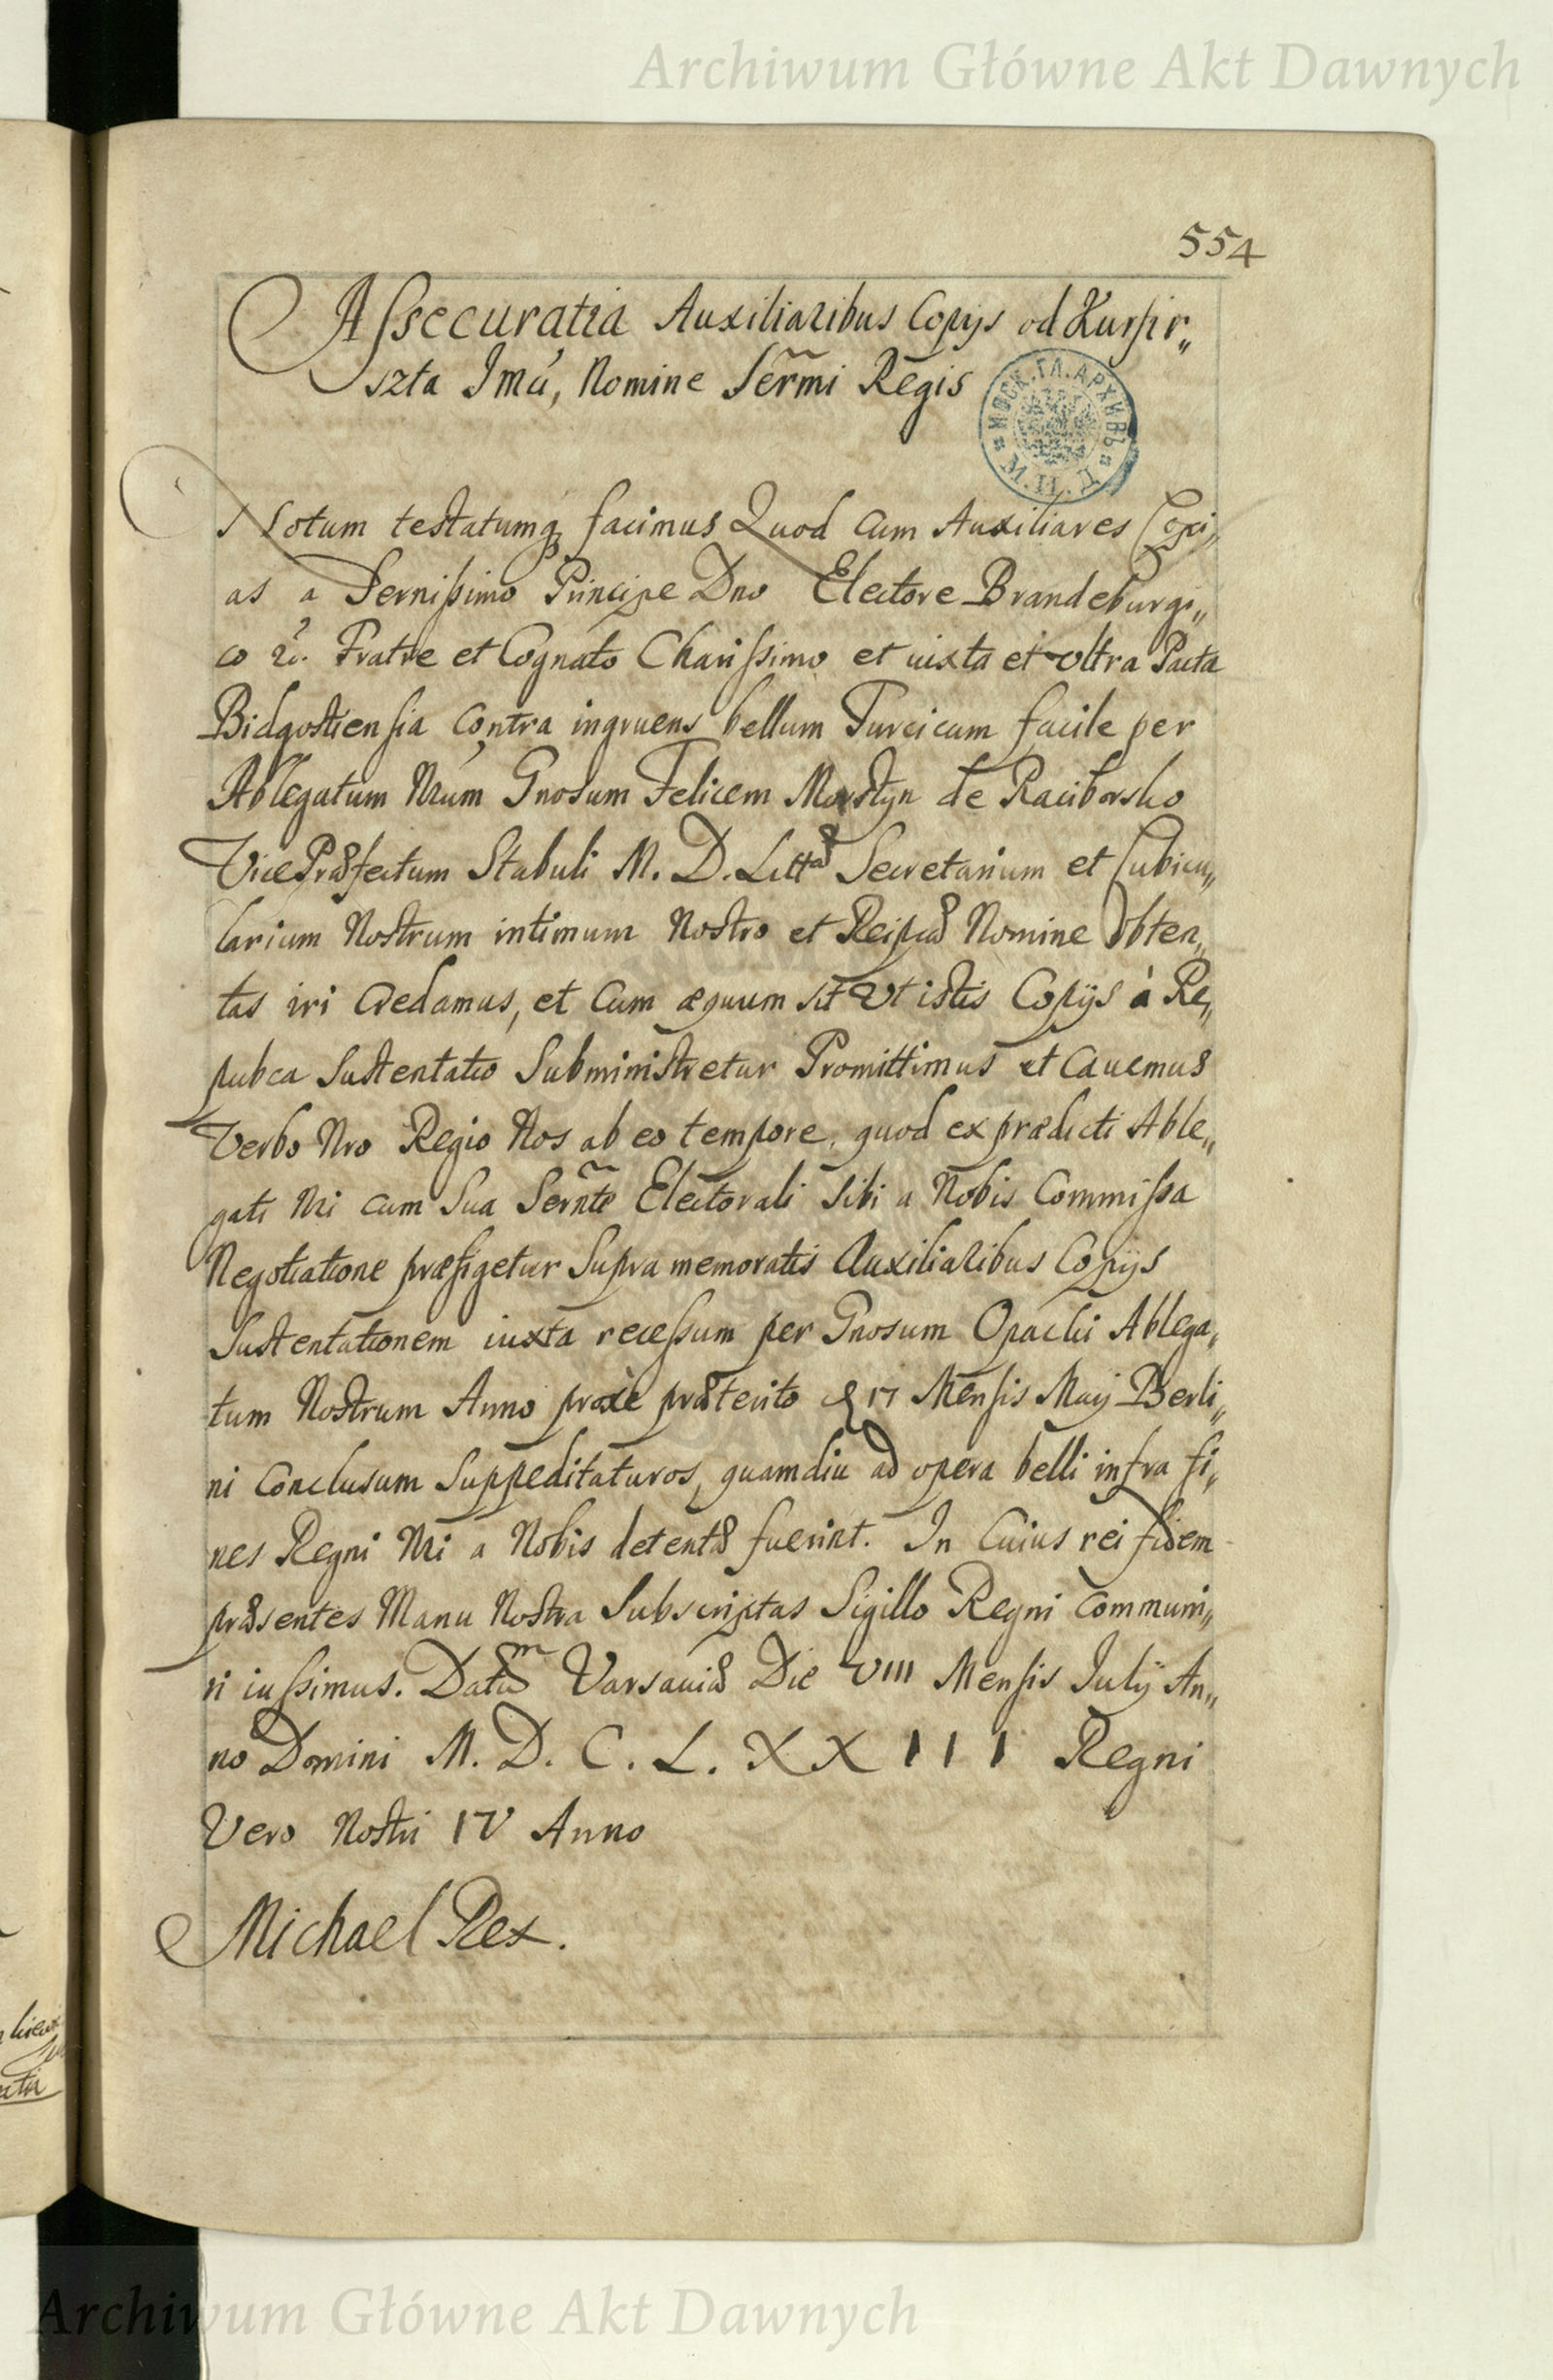 Archiwum Główne Akt Dawnych
554
Assecuratia Auxiliaribus Copijs od Kurfir„
szta Imći, Nomine Serm̃i Regis
МОСК. ГЛ. АРХИВЪ
Notum testatumq₃ facimus Quod cum Auxiliares Copi„
as a Sernissimo Principe Dno Electore Brandeburgi„
co &. Fratre et Cognato Charissimo et iuxta et ultra Pacta
Bidgostiensia contra ingruens bellum Turcicum facile per
Ablegatum Nrum Gnosum Felicem Morstyn de Raciborsko
VicePræfectum Stabuli M. D. Littæ Secretarium et Cubicu„
larium Nostrum intimum Nostro et Reipcæ Nomine obten„
tas iri credamus, et Cum æquum sit Vt istis Copijs à Re„
pubca Sustentatio Subministretur Promittimus et Cauemus
Verbo Nro Regio Nos ab eo tempore, quod ex prædicti Able„
gati Nri cum Sua Sernte Electorali Sibi a Nobis Commissa
Negotiatione præfigetur Supra memoratis Auxiliaribus Copijs
Sustentationem iuxta recessum per Gnosum Opacki Ablega„
tum Nostrum Anno proxe præterito 17 Mensis Maij Berli„
ni Conclusum Suppeditaturos, quamdiu ad opera belli infra fi„
nes Regni Nri a Nobis detentæ fuerint. In Cuius rei fidem
præsentes Manu Nostra Subscriptas Sigillo Regni Communi„
ri iussimus. Datum Varsauiæ Die VIII Mensis Julij An„
no Domini M. D. C. L. X X I I I Regni
Vero Nostri IV Anno
Michael Rex.
Archiwum Główne Akt Dawnych